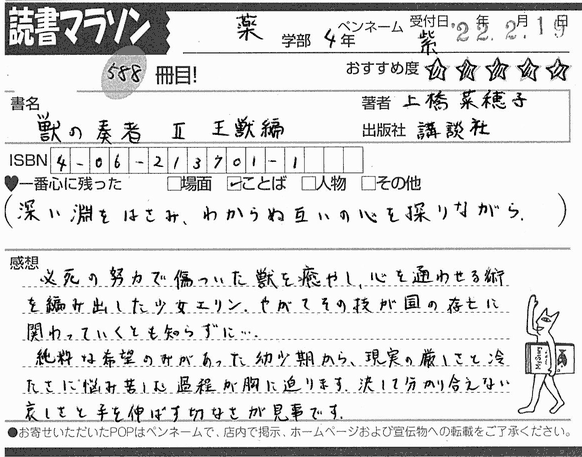 読書マラソン
薬 学部 4年
ペンネーム 紫
受付日 '22年 2月 19日
588 冊目!
おすすめ度 ☆☆☆☆☆
書名 獣の奏者 Ⅱ 王獣編
著者 上橋菜穂子
出版社 講談社
ISBN 4-06-213701-1
♥一番心に残った □場面 ☑ことば □人物 □その他
(深い淵をはさみ、わからぬ互いの心を探りながら。)
感想
必死の努力で傷ついた獣を癒やし、心を通わせる術
を編み出した少女エリン。やがてその技が国の存亡に
関わっていくとも知らずに…。
純粋な希望のみがあった幼少期から、現実の厳しさと冷
たさに悩み苦しむ過程が胸に迫ります。決して分かり合えない
哀しさと手を伸ばす切なさが見事です。
●お寄せいただいたPOPはペンネームで、店内で掲示、ホームページおよび宣伝物への転載をご了承ください。